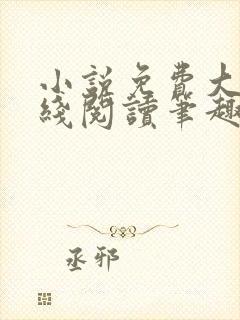 小說免費大
綫閱讀筆趣
丞邪